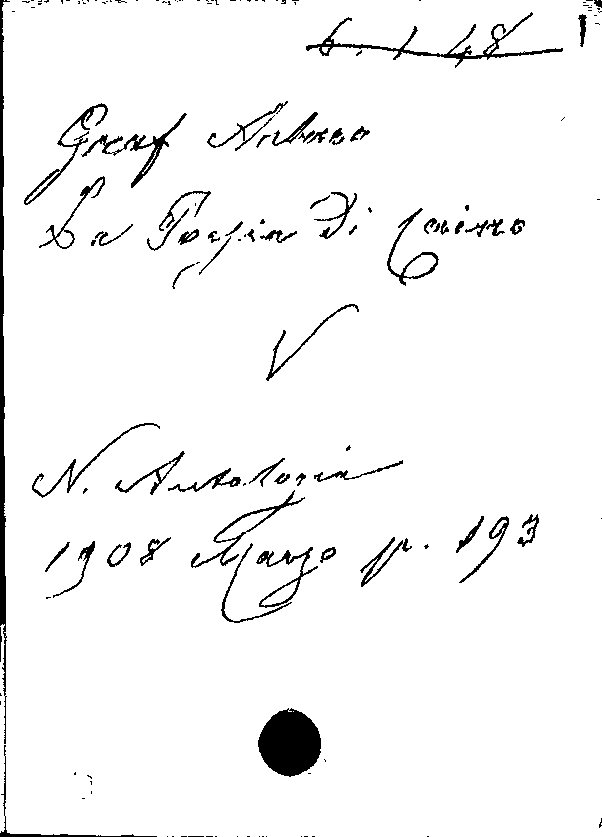 6. 1 48
Graf Arturo
La Poesia di Caino
V
N. Antologia
1908 Marzo p. 193